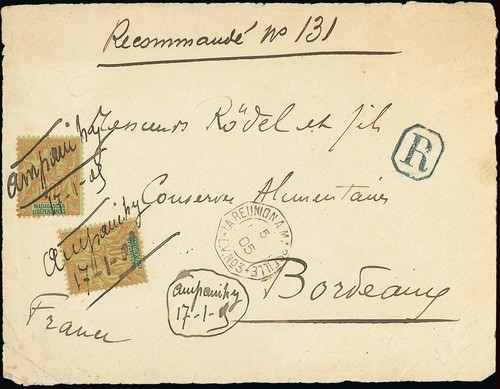 Recommandé No 131
Messieurs Rödel et fils
Ampanihy
17-1-05
MADAGASCAR
Conserves Alimentaires
R
Ampanihy
17-1-05
LA REUNION A MARSEILLE
5
05
Ampanihy
17-1-05
Bordeaux
France